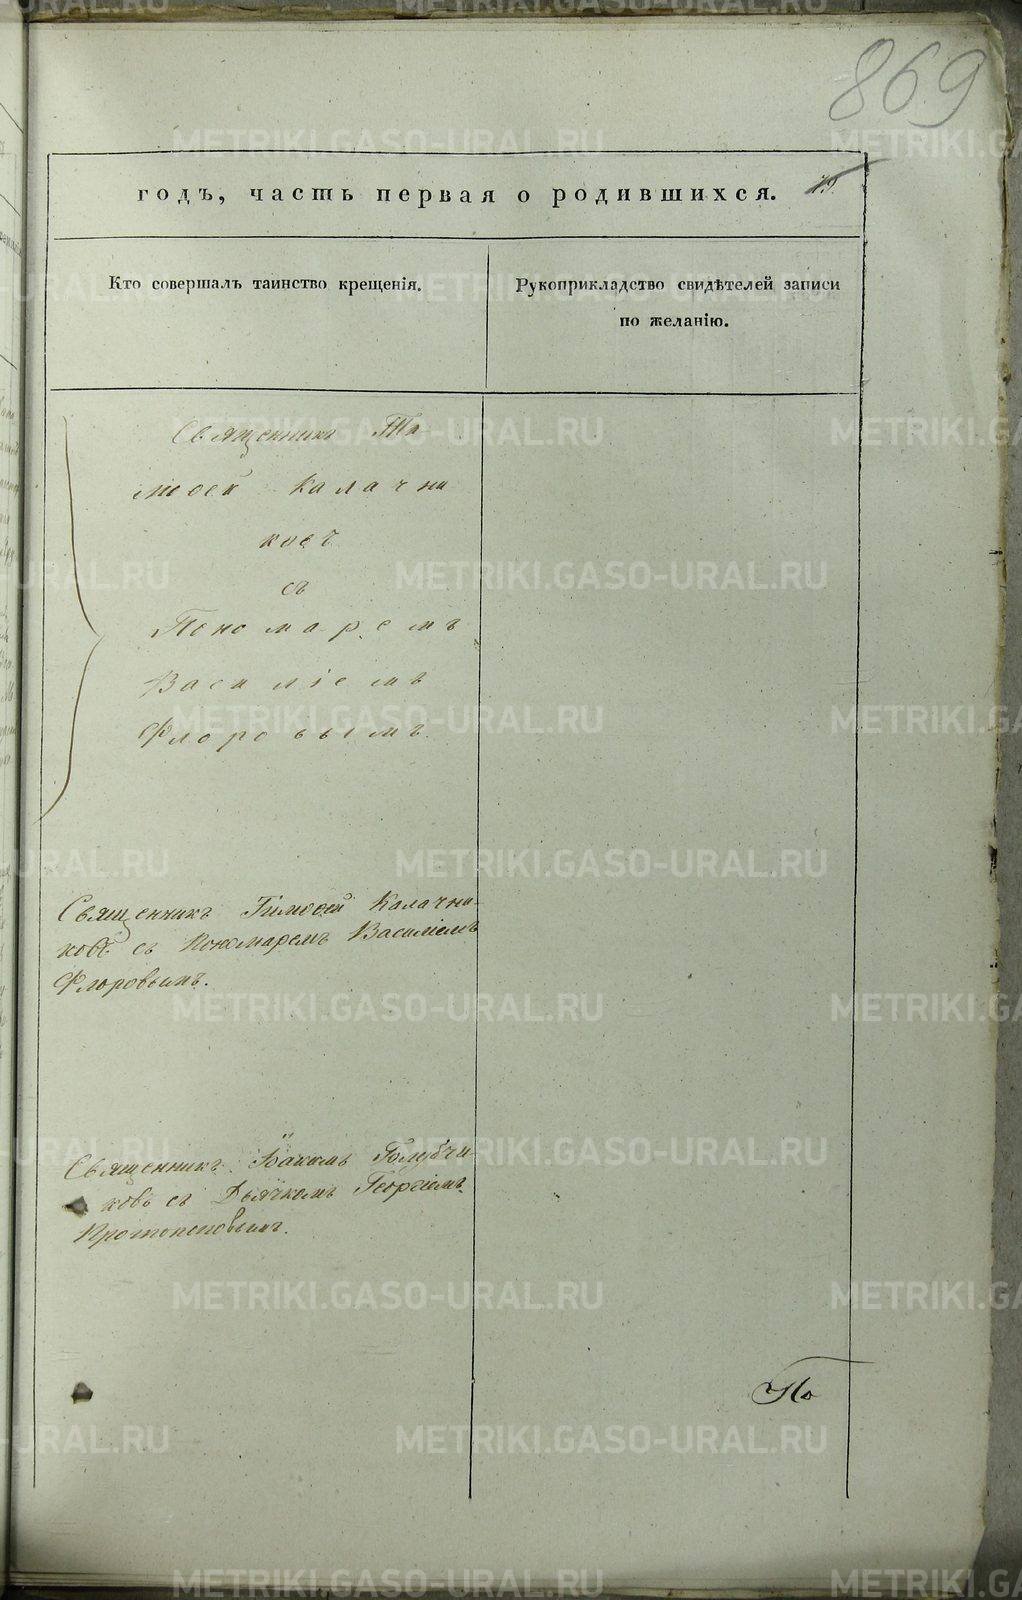 869
годъ, часть первая о родившихся.
19.
Кто совершалъ таинство крещенія.
Рукоприкладство свидѣтелей записи
по желанію.
Священникъ Ти
моѳей Калачни
ковъ
съ
Пономаремъ
Василіемъ
Флоровымъ.
Священникъ Тимоѳей Калачни-
ковъ съ Пономаремъ Василіемъ
Флоровымъ.
Священникъ Іоакимъ Голубчи
ковъ съ Дьячкомъ Георгіемъ
Протопоповымъ.
По
METRIKI.GASO-URAL.RU